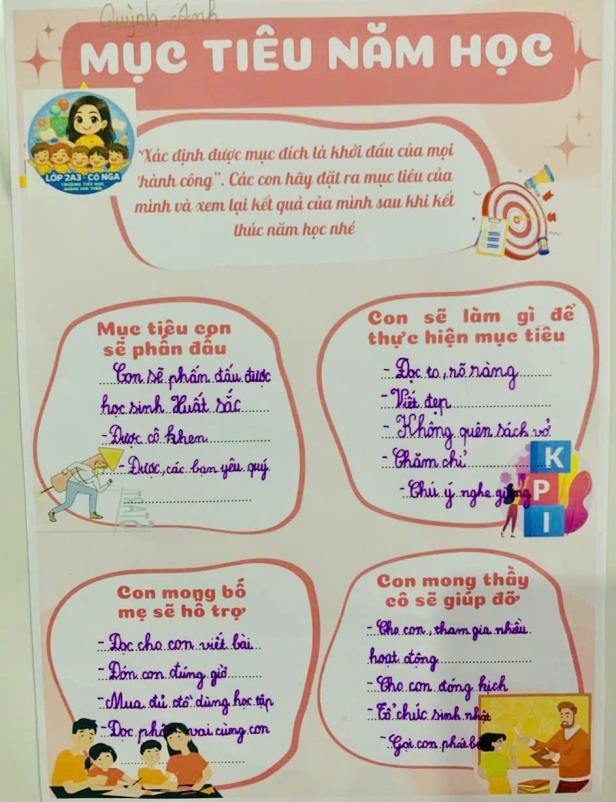 Quỳnh Anh
MỤC TIÊU NĂM HỌC
LỚP 2A3 - CÔ NGA
"Xác định được mục đích là khởi đầu của mọi
thành công". Các con hãy đặt ra mục tiêu của
mình và xem lại kết quả của mình sau khi kết
thúc năm học nhé
Mục tiêu con
sẽ phấn đấu
Con sẽ phấn đấu được
học sinh Xuất sắc
- Được cô khen
- Được, các bạn yêu quý
Con sẽ làm gì để
thực hiện mục tiêu
- Đọc to, rõ ràng
- Viết đẹp
- Không quên sách vở
- Chăm chỉ
- Chú ý nghe giảng
K
P
I
Con mong bố
mẹ sẽ hỗ trợ
- Đọc cho con viết bài
- Đón con đúng giờ
- Mua đủ đồ dùng học tập
- Đọc phân vai cùng con
Con mong thầy
cô sẽ giúp đỡ
- Cho con, tham gia nhiều
hoạt động
- Cho con đóng kịch
- Tổ chức sinh nhật
- Gọi con phát